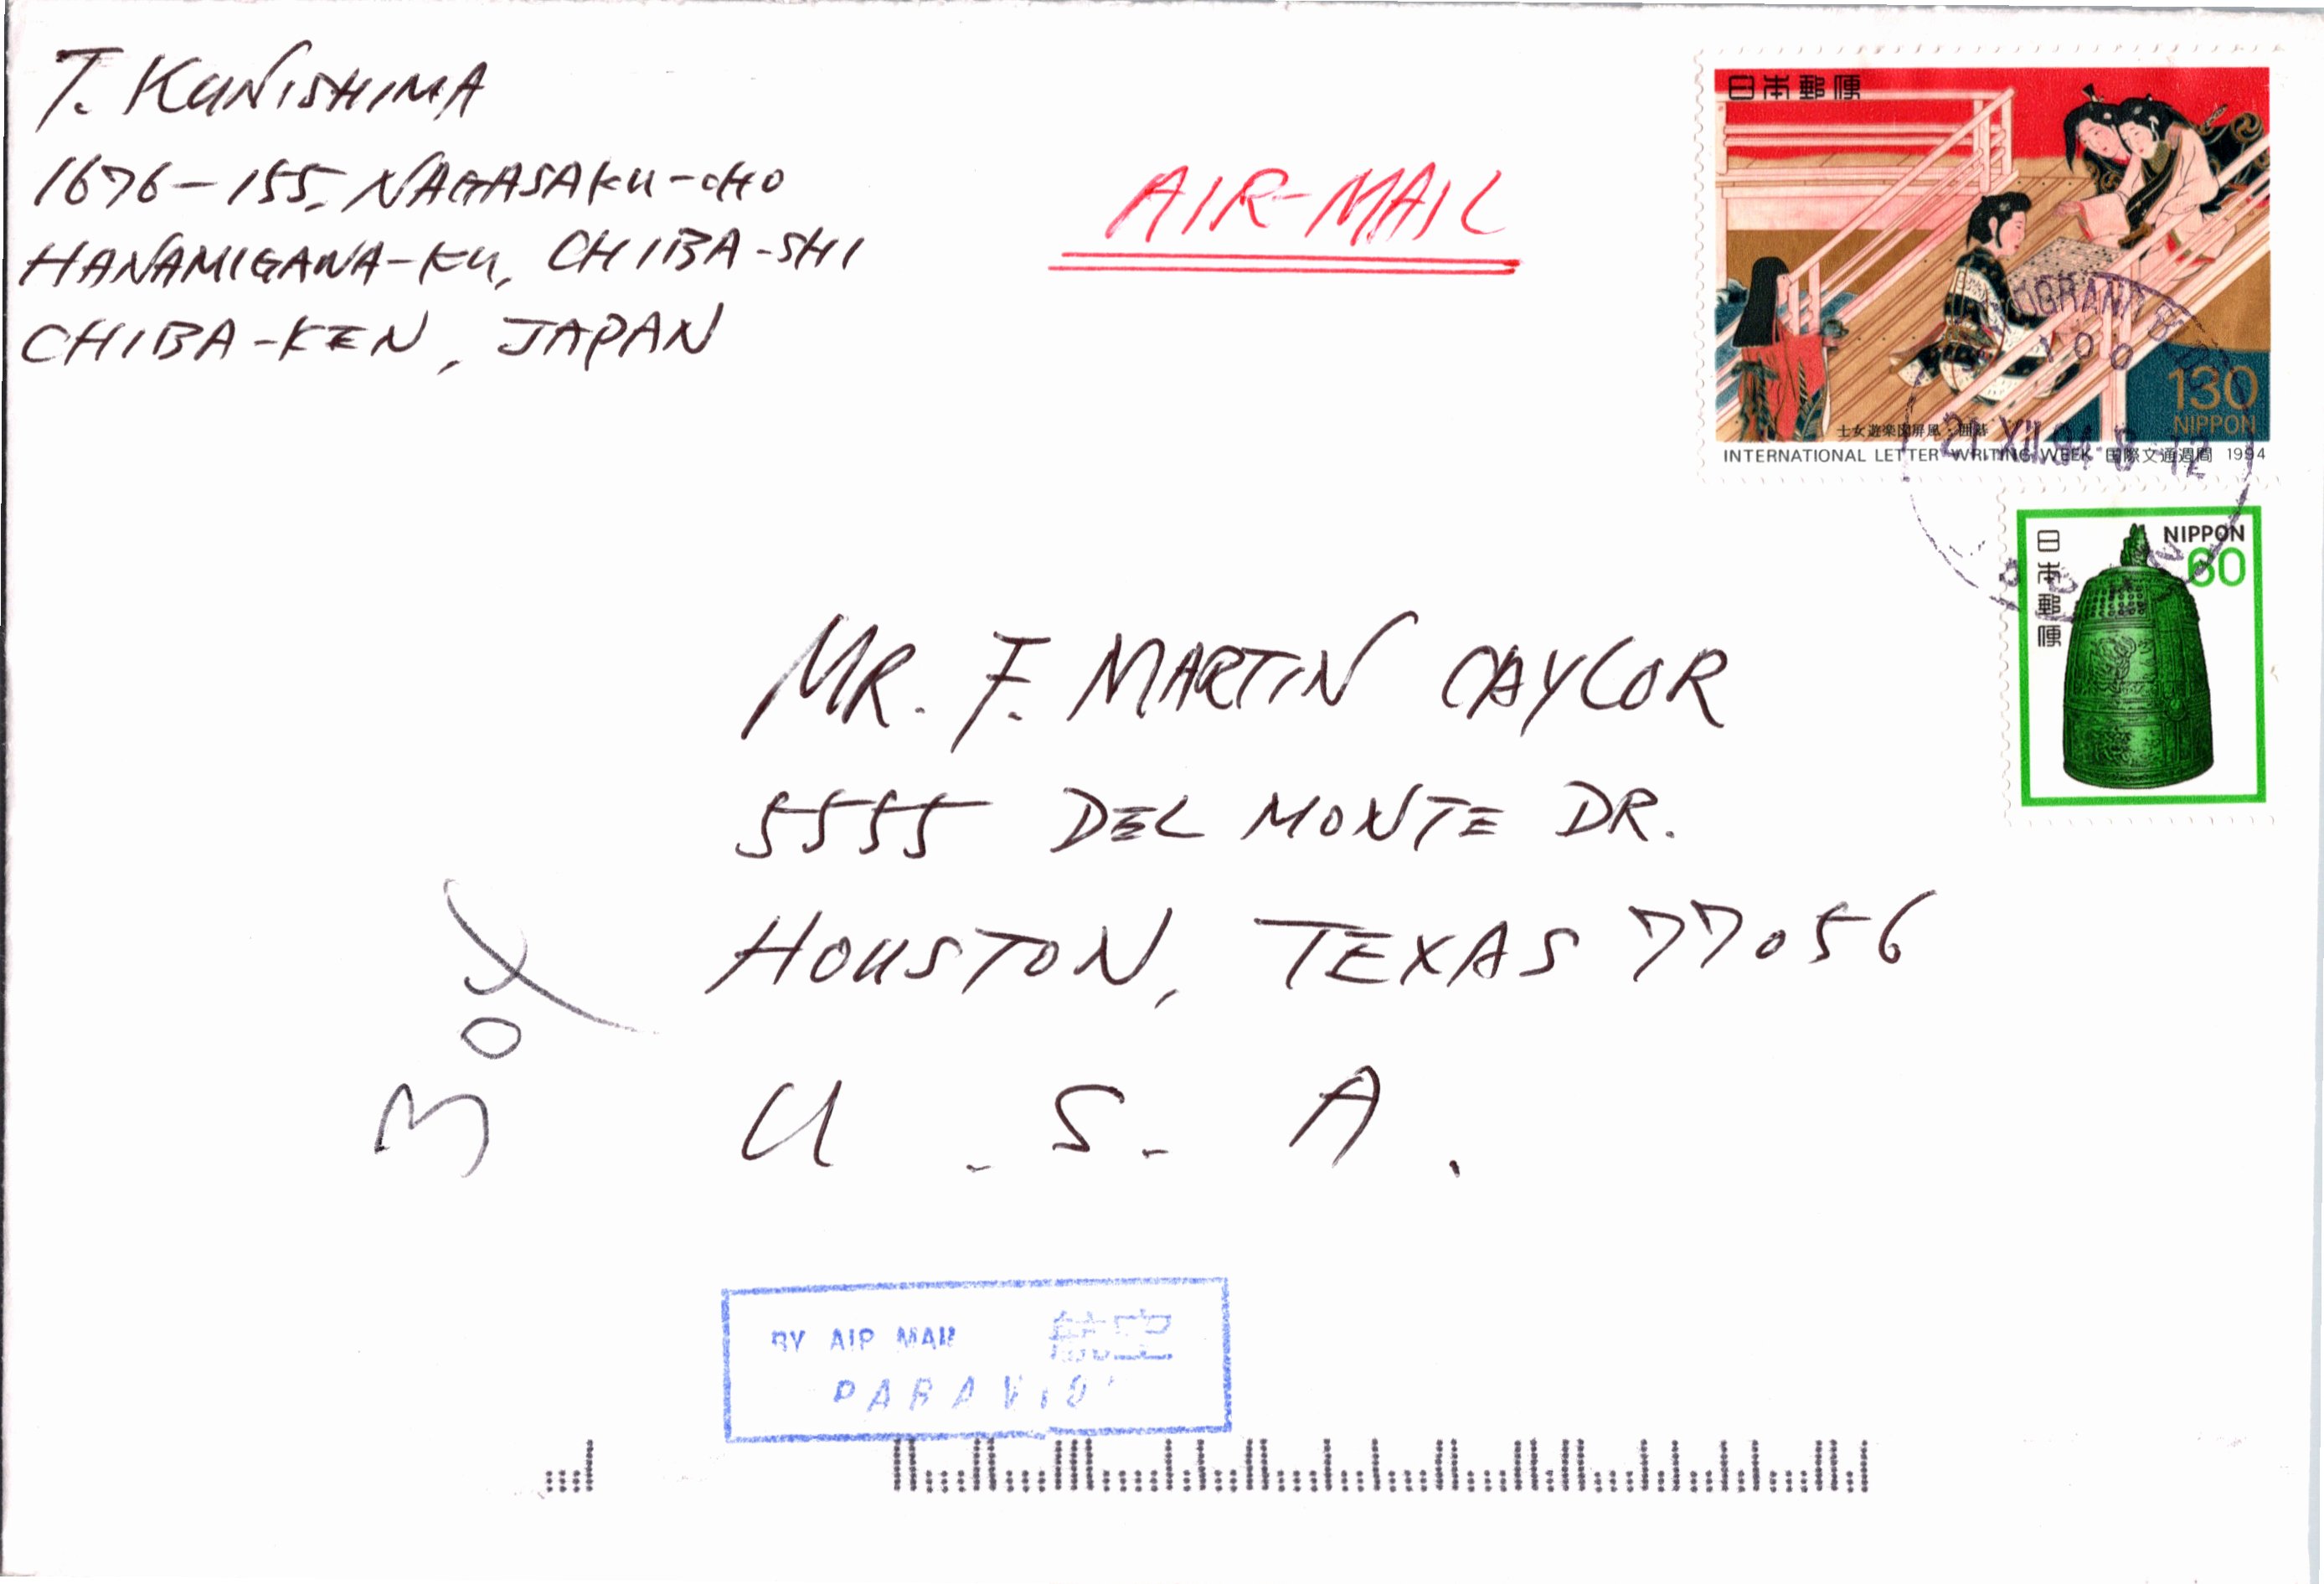 T. KUNISHIMA
1676-155, NAGASAKU-CHO
HANAMIGAWA-KU, CHIBA-SHI
CHIBA-KEN, JAPAN
AIR-MAIL
日本郵便
130
NIPPON
士女遊楽図屏風・囲碁
INTERNATIONAL LETTER WRITING WEEK 国際文通週間 1994
100
21 XII 94 8-12
NIPPON
60
日本郵便
MR. F. MARTIN CAYLOR
5555 DEL MONTE DR.
HOUSTON, TEXAS 77056
U.S.A.
BY AIR MAIL 航空
PAR AVION